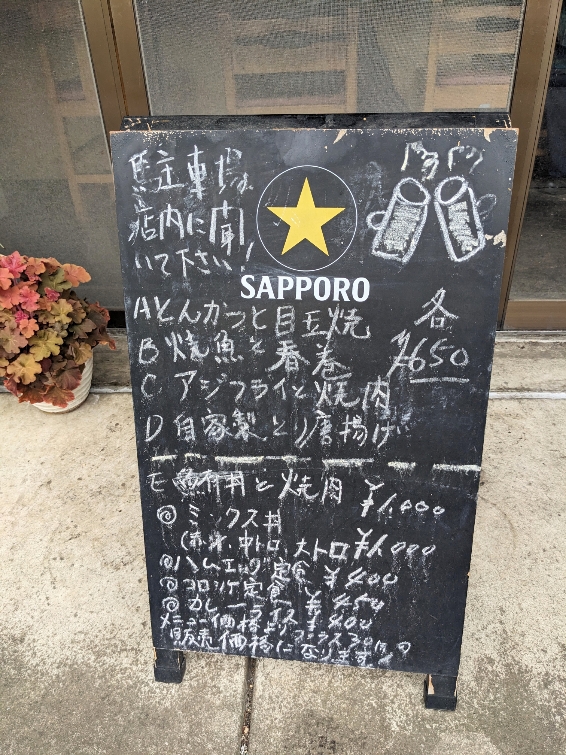 駐車場は
店内に聞
いて下さい!
SAPPORO
Aとんかつと目玉焼
B 焼魚と春巻
C アジフライと焼肉
D 自家製とり唐揚げ
各
¥650
E 丼と焼肉 ¥1,000
◎ミックス丼
(赤身、中トロ、大トロ ¥1,000
◎ハムエッグ定食 ¥400
◎コロッケ定食 ¥450
◎カレーライス ¥400
メニュー価格より
販売価格プラス30円
になります